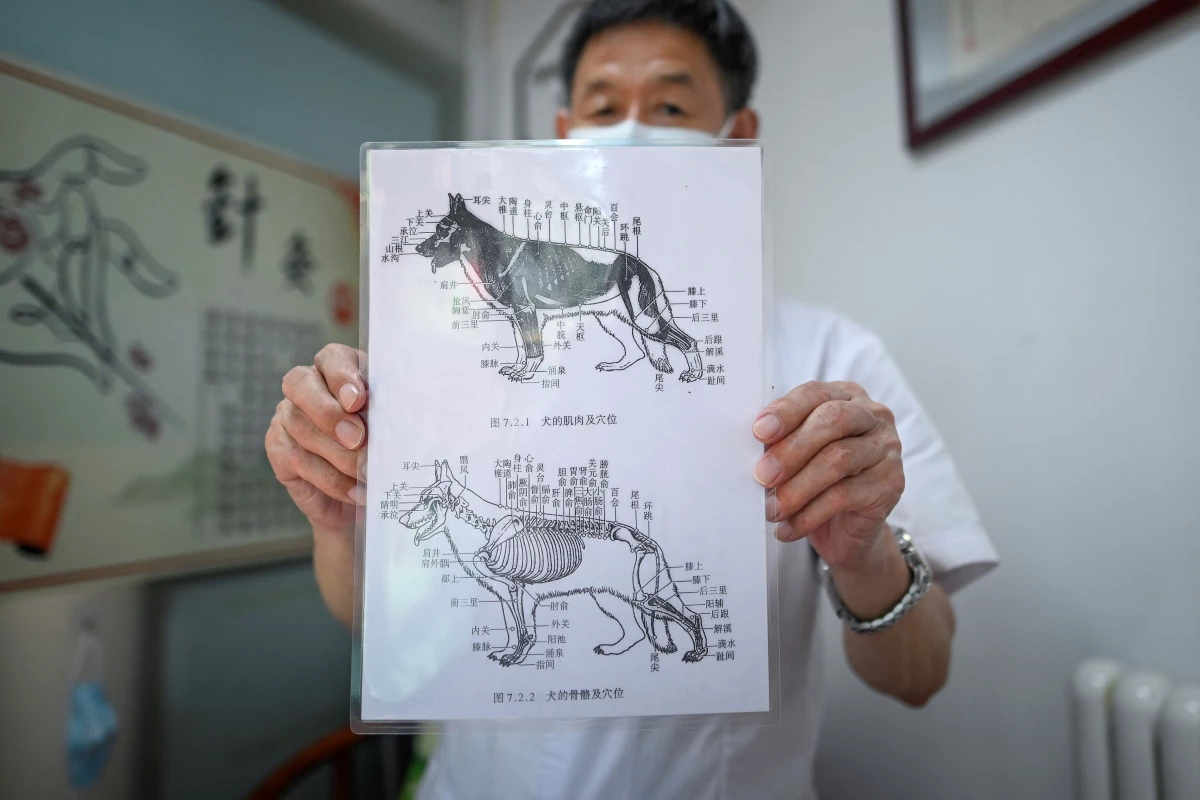 针
灸
耳尖
大椎
陶道
身柱
心俞
灵台
中枢
悬枢
命门
阳关
关后
百会
环跳
尾根
上关
下关
承泣
三江
山根
水沟
肩井
抢风
胸堂
肘俞
前三里
内关
膝脉
中脘
外关
天枢
涌泉
指间
膝上
膝下
后三里
后跟
解溪
滴水
趾间
尾尖
图 7.2.1 犬的肌肉及穴位
耳尖
翳风
大椎
陶道
肺俞
身柱
厥阴俞
心俞
督俞
灵台
膈俞
肝俞
胆俞
脾俞
胃俞
三焦俞
肾俞
大肠俞
关元俞
小肠俞
膀胱俞
百会
尾根
环跳
上关
下关
睛明
承泣
肩井
肩外髃
郄上
前三里
内关
膝脉
肘俞
外关
阳池
涌泉
指间
膝上
膝下
后三里
阳辅
后跟
解溪
滴水
趾间
尾尖
图 7.2.2 犬的骨骼及穴位